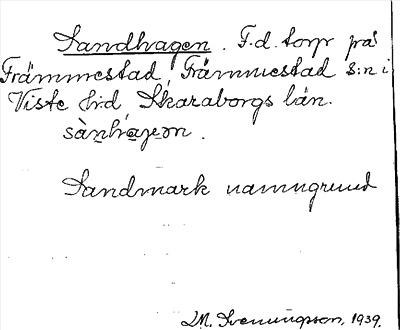 Sandhagen. F.d. torp på
Främmestad, Främmestad s:n i
Viste h:d Skaraborgs län.
sànhágen.
Sandmark namngrund
M. Sveningsson, 1939.